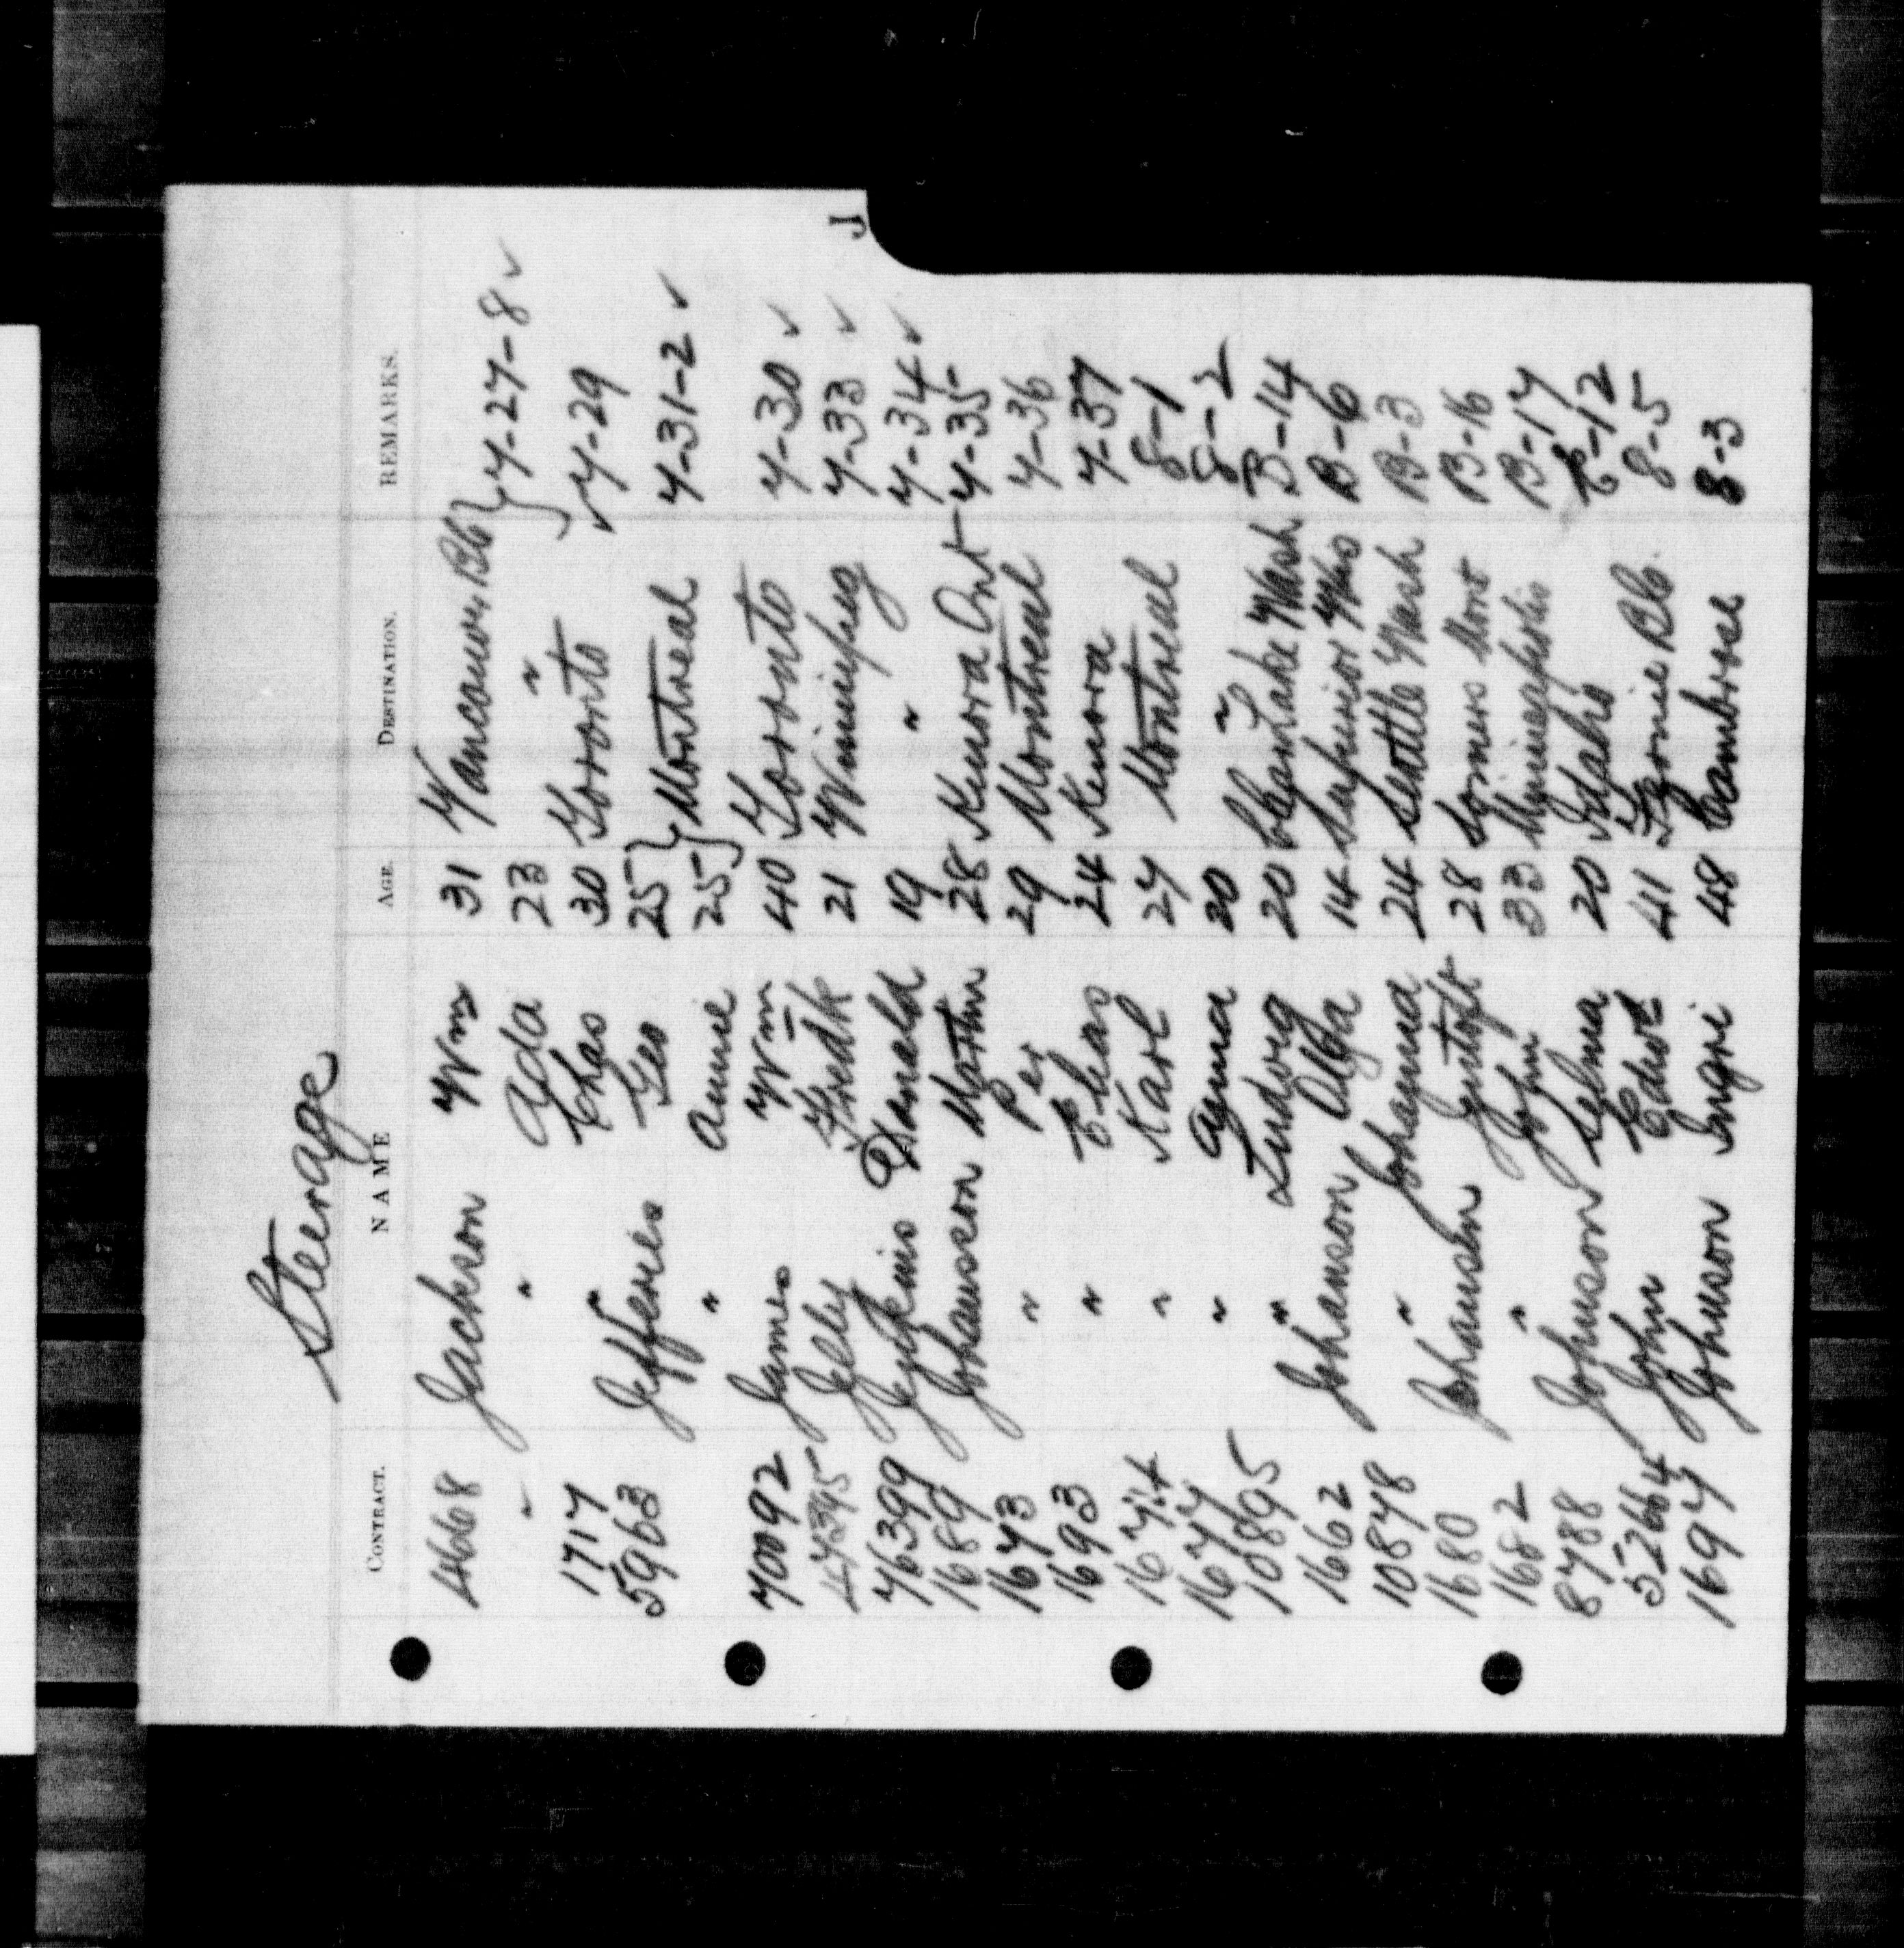 J
Steerage
CONTRACT. NAME AGE DESTINATION. REMARKS.
4668 Jackson Wm 31 Vancouver BC } 7-27-8 ✓
" " Ada 23 "
1717 " Chas 30 Toronto ✓ 7-29
59963 Jefferies Geo 25 } Montreal 7-31-2 ✓
" Annie 25
70092 James Wm 40 Toronto 7-30 ✓
47395 Jelly Fredk 21 Winnipeg 7-33 ✓
76399 Jenkins Donald 19 " 7-34 ✓
1689 Johansson Martin 28 Kenora Ont 7-35
1673 " Per 29 Montreal 7-36
1693 " Elias 24 Kenora 7-37
1674 " Karl 27 Montreal 8-1
1677 " Agma 20 " 8-2
10895 " Ludvig 20 Clear Lake Wash B-14
1662 Johanson Olga 14 Superior Wis B-6
10878 " Johanna 24 Seattle Wash B-3
1680 Johansen 28 Somers Mont B-16
1682 " John 33 Minneapolis B-17
8788 Johnson Selma 20 Idaho C-12
52664 John Edwd 41 Fernie BC. 8-5
1697 Johnson Ingri 48 Cambrose 8-3